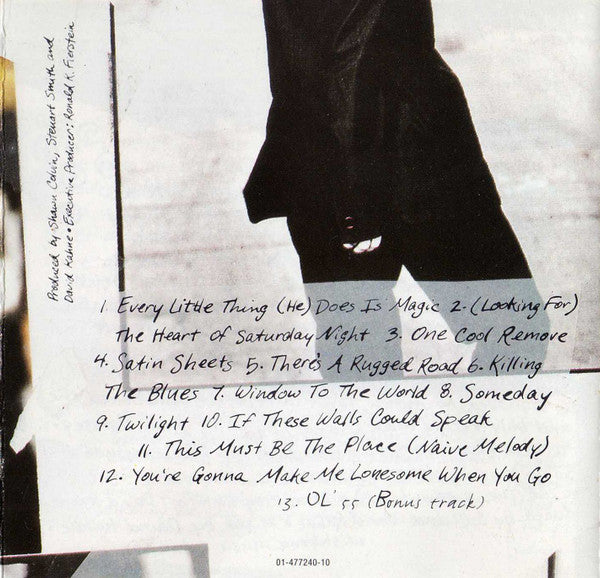 Produced by Shawn Colvin, Steuart Smith and
David Kahne • Executive Producer: Ronald K. Fierstein
1. Every Little Thing (He) Does Is Magic 2. (Looking For)
The Heart of Saturday Night 3. One Cool Remove
4. Satin Sheets 5. There's A Rugged Road 6. Killing
The Blues 7. Window To The World 8. Someday
9. Twilight 10. If These Walls Could Speak
11. This Must Be The Place (Naive Melody)
12. You're Gonna Make Me Lonesome When You Go
13. OL' 55 (Bonus track)
01-477240-10